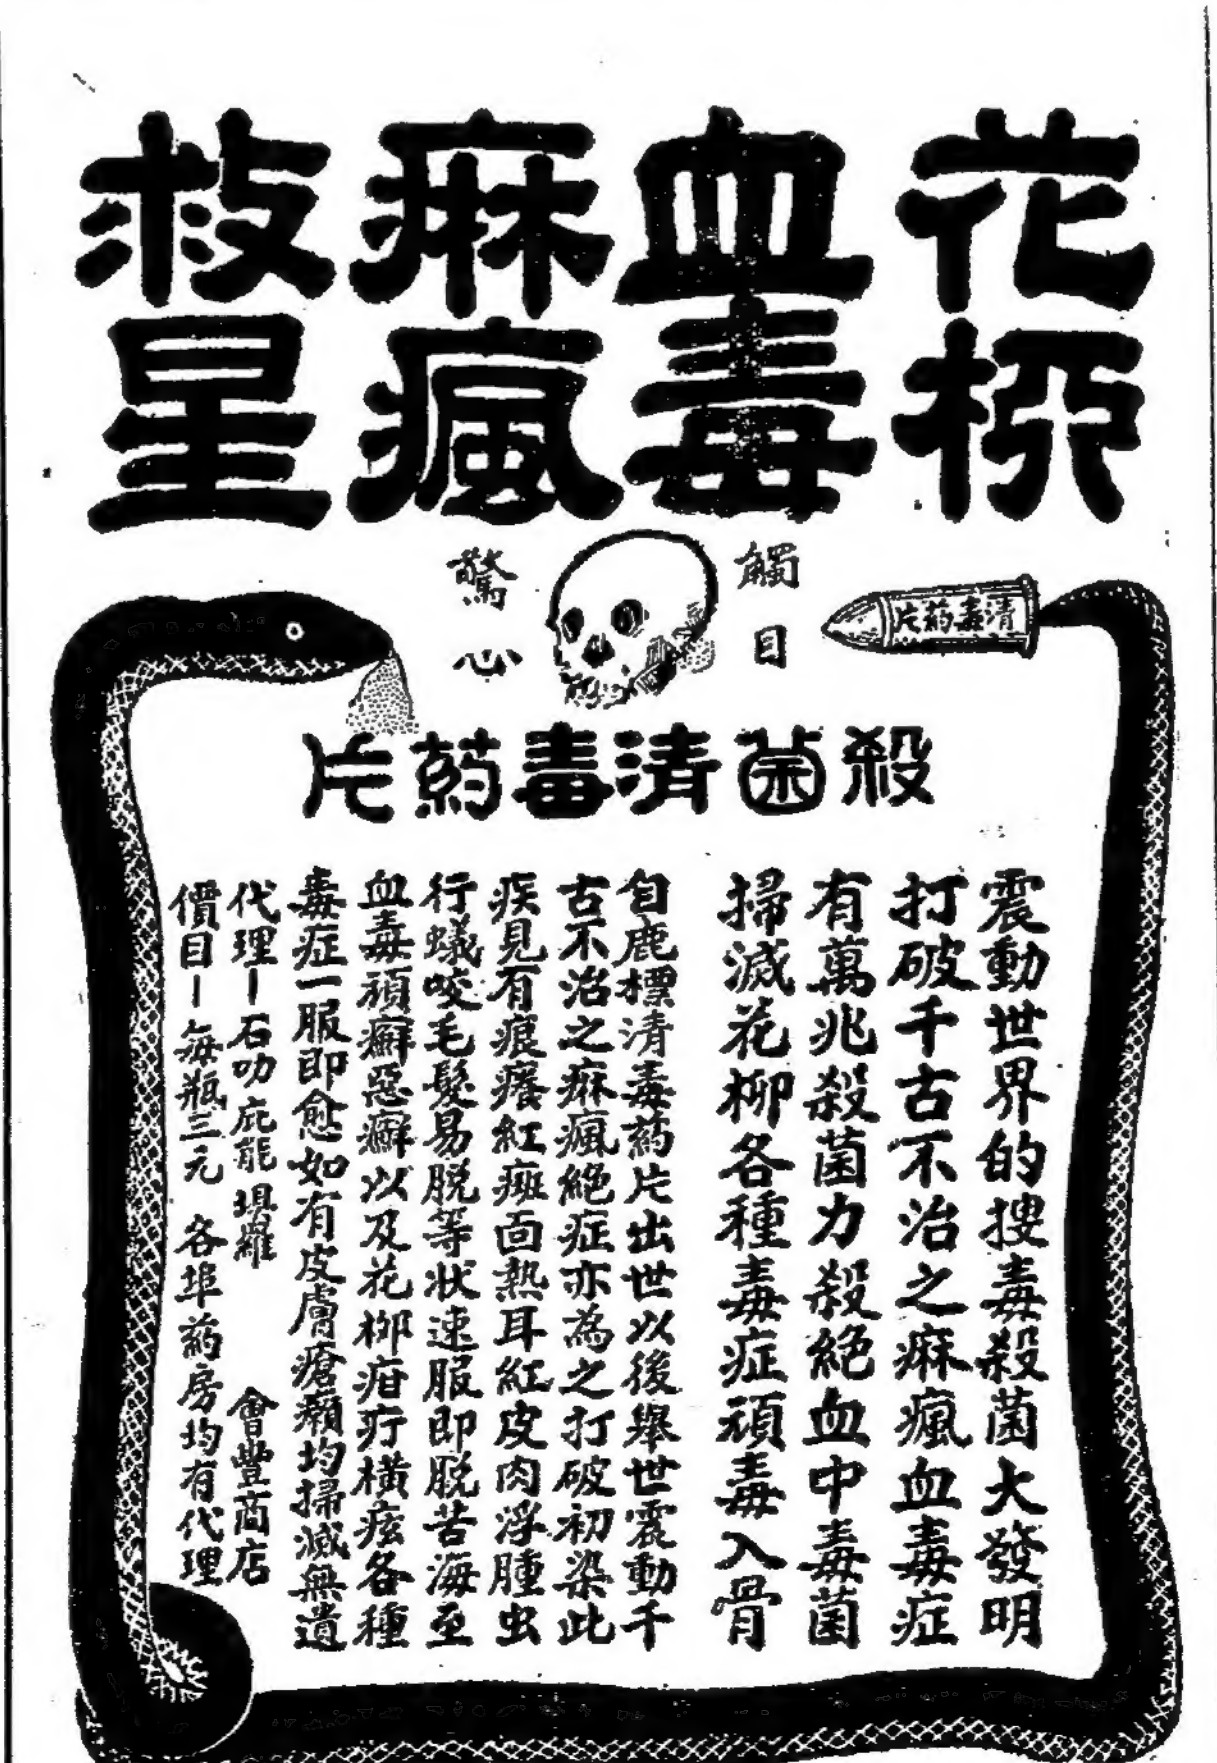 花柳
血毒
麻瘋
救星
觸目
驚心
清毒葯片
殺菌清毒葯片
震動世界的搜毒殺菌大發明
打破千古不治之麻瘋血毒症
有萬兆殺菌力殺絕血中毒菌
掃滅花柳各種毒症頑毒入骨
自鹿標清毒葯片出世以後舉世震動千
古不治之麻瘋絕症亦為之打破初染此
疾見有痕癢紅斑面熱耳紅皮肉浮腫虫
行蟻咬毛髮易脫等狀速服即脫苦海至
血毒頑癬惡癬以及花柳疳疔橫痃各種
毒症一服即愈如有皮膚瘡癩均掃滅無遺
代理－石叻庇能埧羅 會豐商店
價目－每瓶三元 各埠葯房均有代理